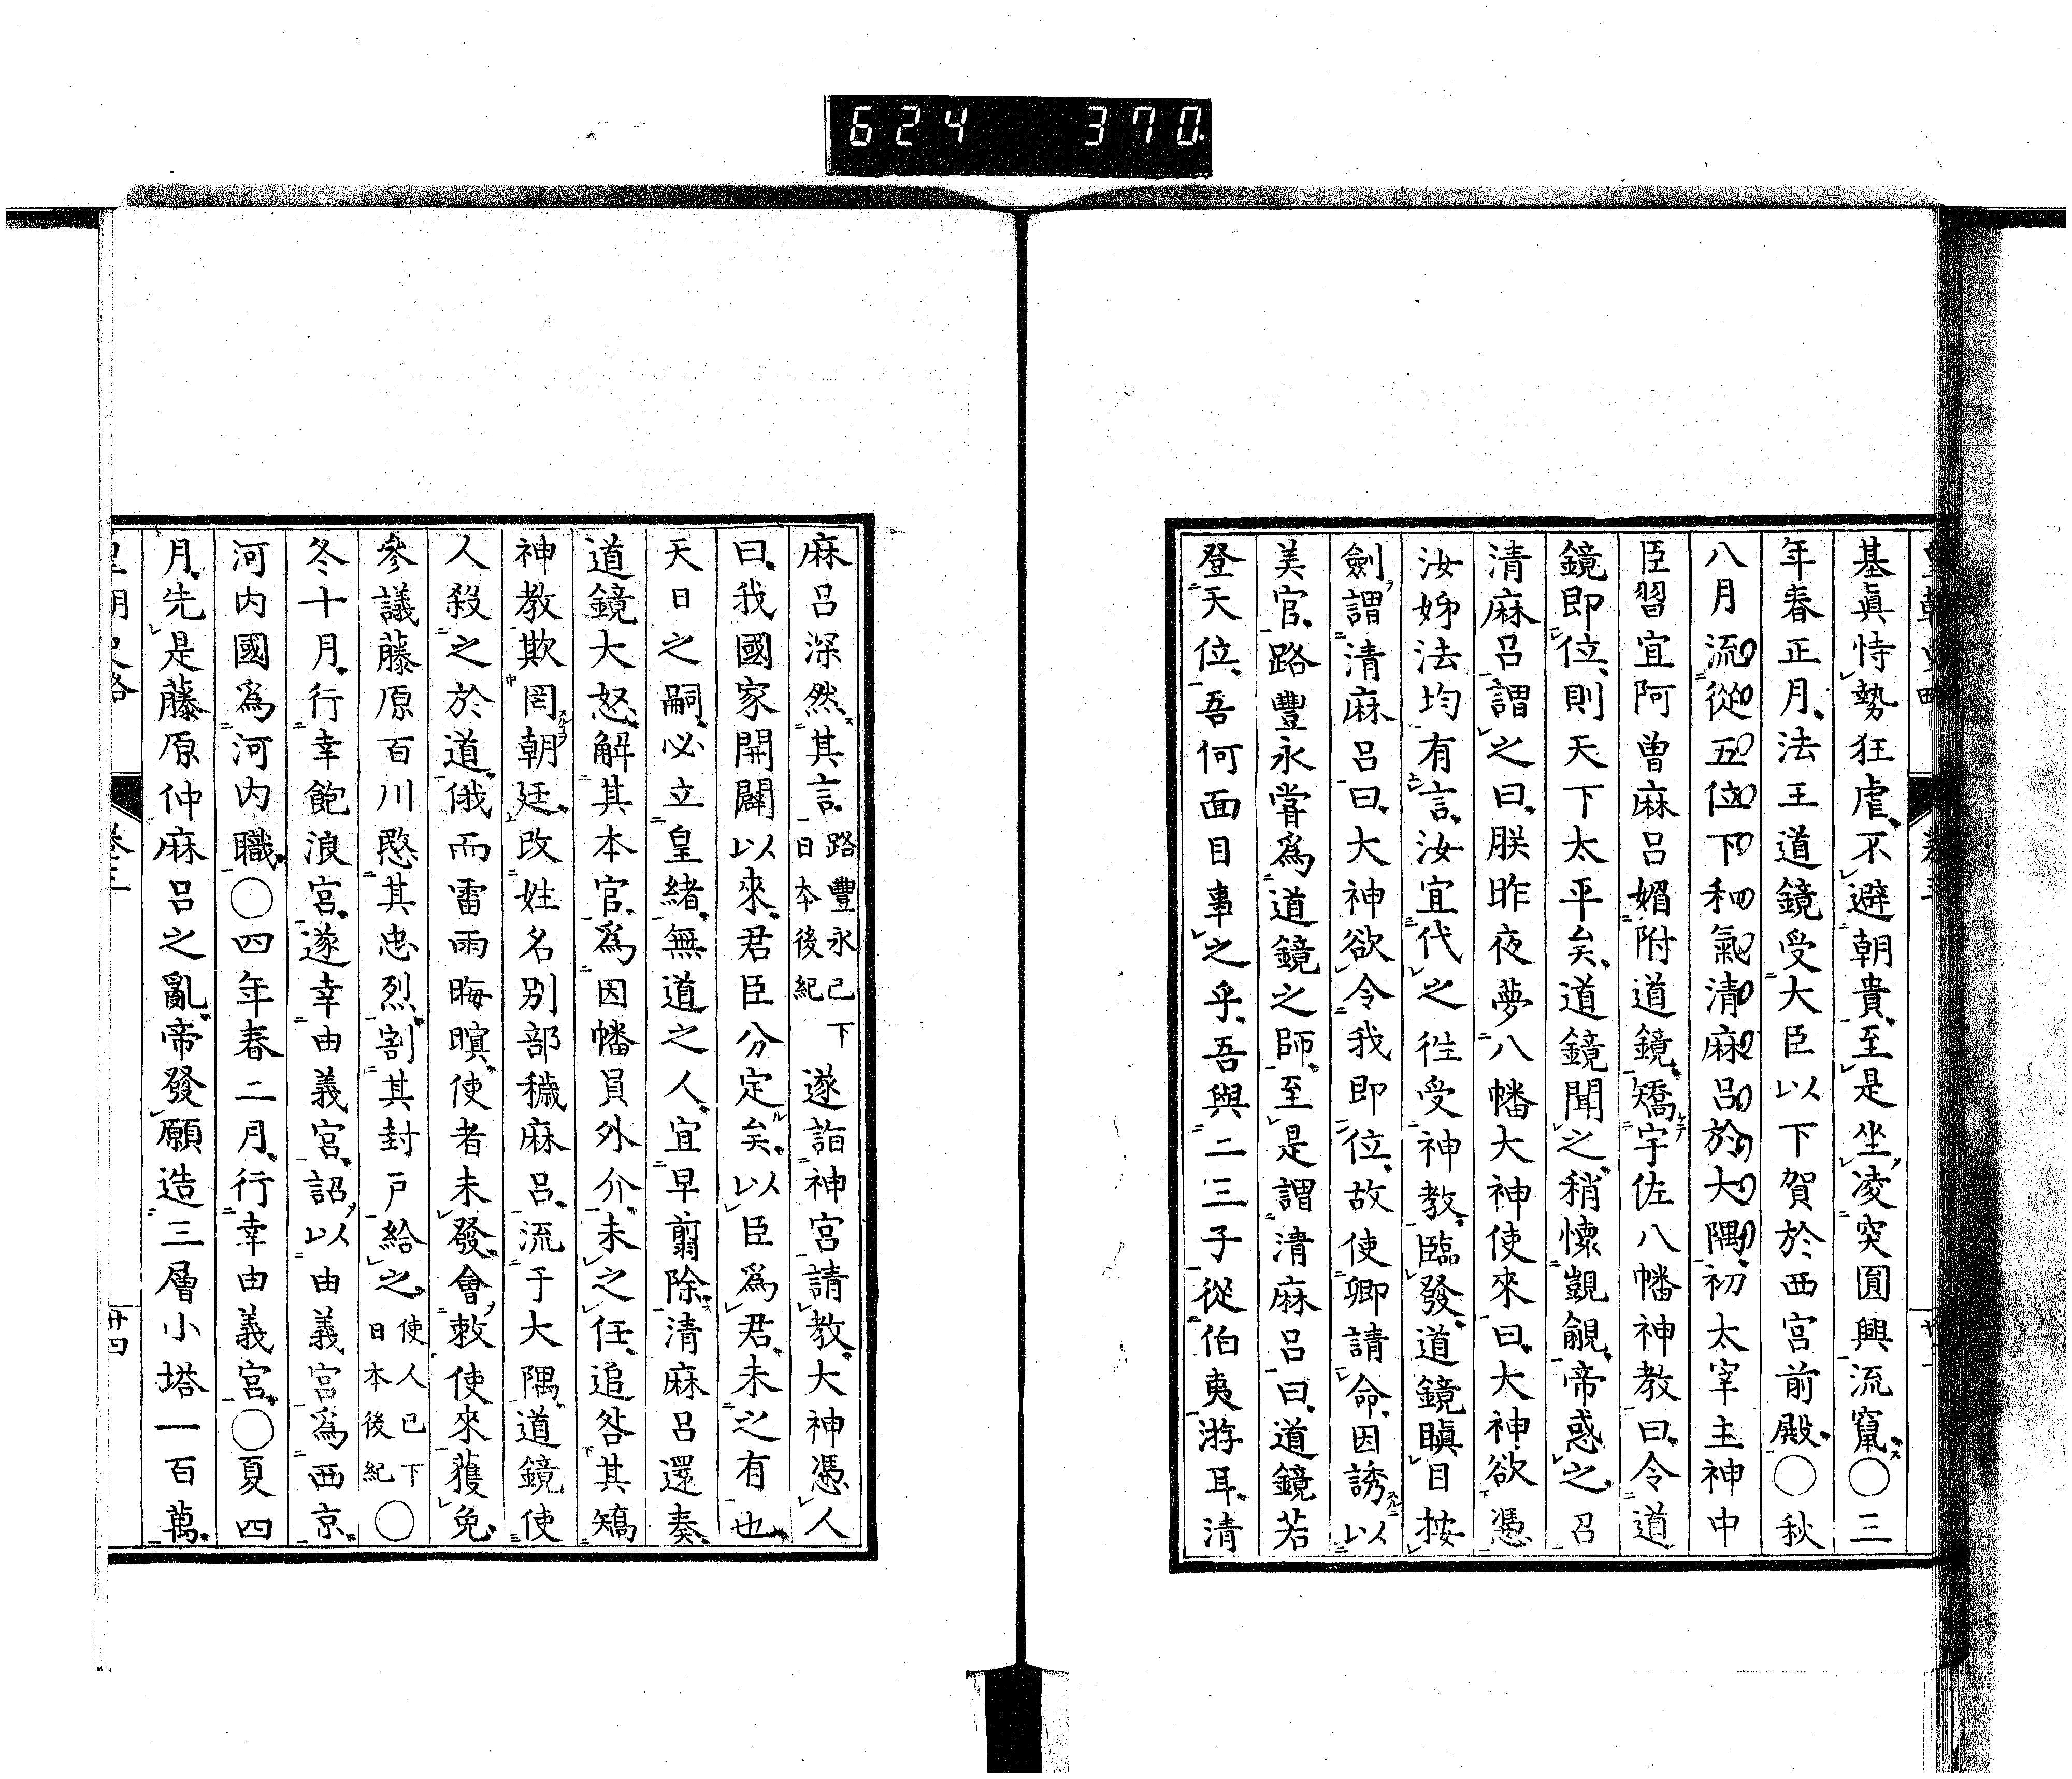 624 370
基眞恃勢狂虐不避朝貴至是坐凌突圓興流竄〇三
年春正月法王道鏡受大臣以下賀於西宮前殿〇秋
八月流從五位下和氣清麻呂於大隅初太宰主神中
臣習宜阿曾麻呂媚附道鏡矯宇佐八幡神教曰令道
鏡即位則天下太平矣道鏡聞之稍懷覬覦帝惑之召
清麻呂謂之曰朕昨夜夢八幡大神使來曰大神欲憑
汝姊法均有言汝宜代之往受神教臨發道鏡瞋目按
劍謂清麻呂曰大神欲令我即位故使卿請命因誘以
美官路豐永嘗爲道鏡之師至是謂清麻呂曰道鏡若
登天位吾何面目事之乎吾與二三子從伯夷游耳清
麻呂深然其言路豐永已下日本後紀遂詣神宮請教大神憑人
曰我國家開闢以來君臣分定矣以臣爲君未之有也
天日之嗣必立皇緒無道之人宜早翦除清麻呂還奏
道鏡大怒解其本官爲因幡員外介未之任追咎其矯
神教欺罔朝廷改姓名別部穢麻呂流于大隅道鏡使
人殺之於道俄而雷雨晦暝使者未發會敕使來獲免
參議藤原百川愍其忠烈割其封戸給之使人已下日本後紀〇
冬十月行幸飽浪宮遂幸由義宮詔以由義宮爲西京
河内國爲河内職〇四年春二月行幸由義宮〇夏四
月先是藤原仲麻呂之亂帝發願造三層小塔一百萬
卷三
廿四